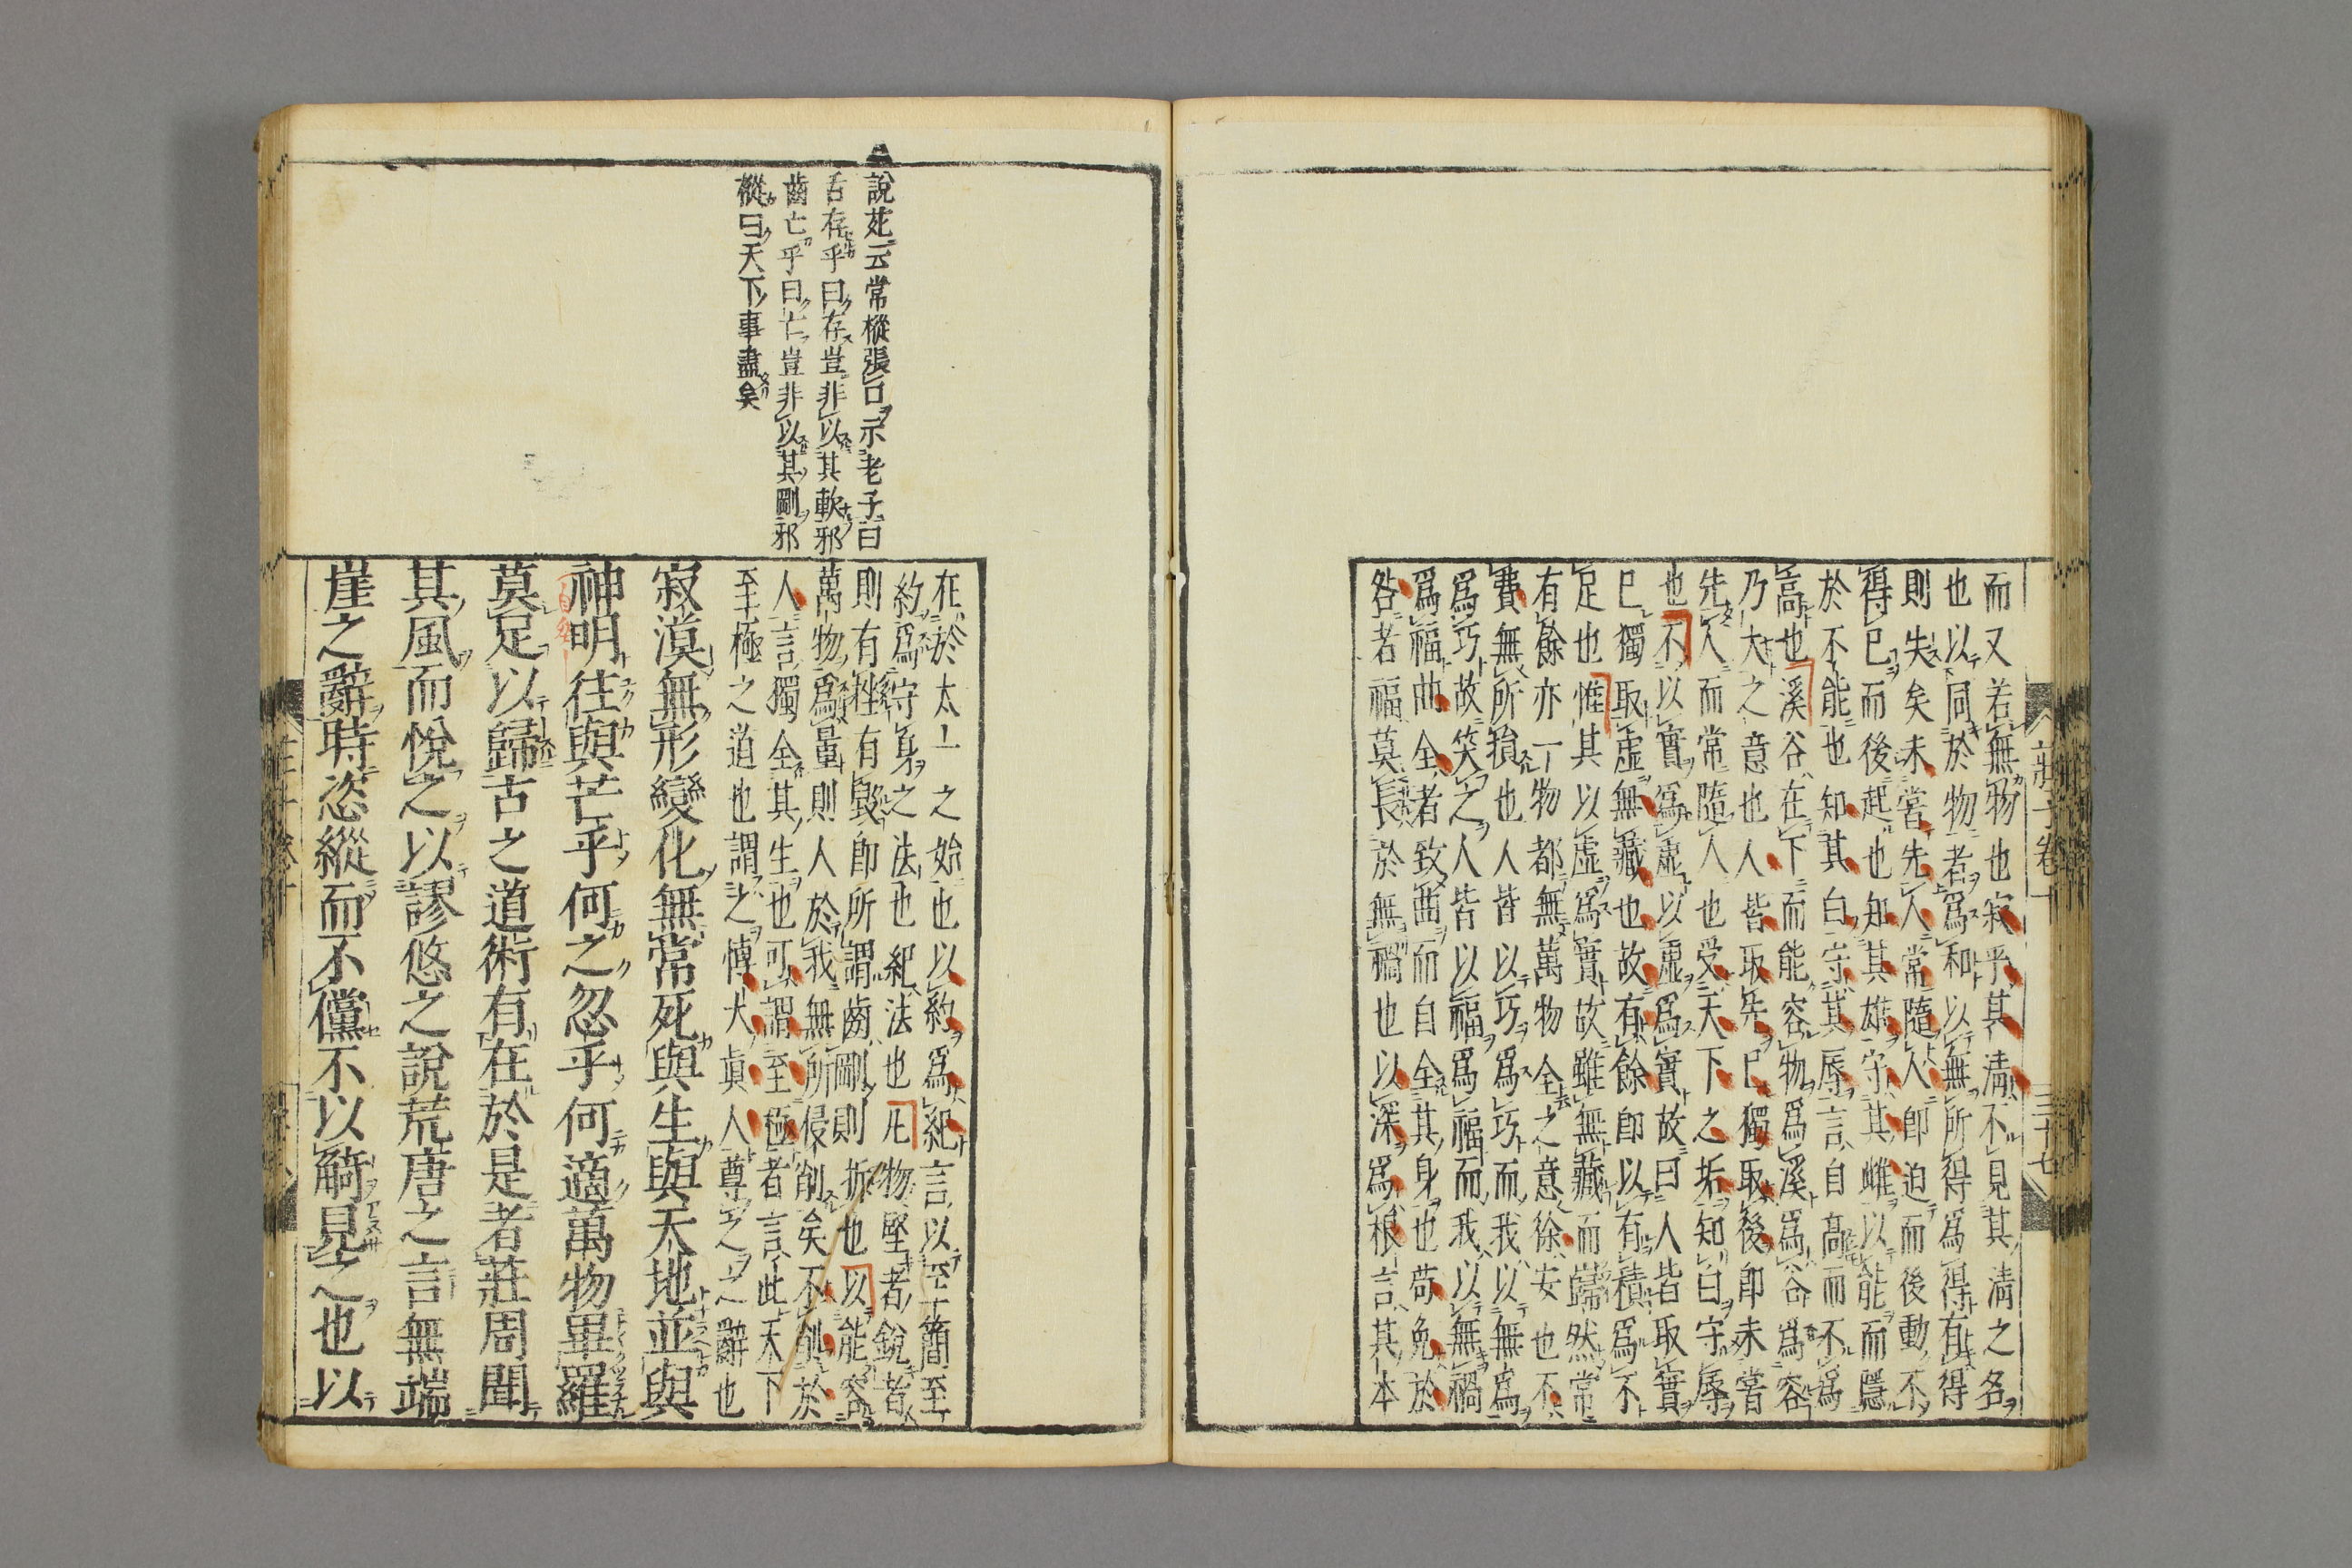 莊子卷十
三十七
而又若無物也寂乎其淸不見其淸之名
也以同於物者爲和以無所得爲得有得
則失矣未嘗先人常隨人卽迫而後動不
得已而後起也知其雄守其雌以能而隱
於不能也知其白守其辱言自高而不爲
高也溪谷在下而能容物爲溪爲谷爲容
乃大之意也人皆取先已獨取後卽未嘗
先人而常隨人也受天下之垢知白守辱
也不以實爲虛以虛爲實故曰人皆取實
已獨取虛無藏也故有餘卽以有積爲不
足也惟其以虛爲實故雖無藏而巋然常
有餘亦一物都無萬物全之意徐安也不
費無所損也人皆以巧爲巧而我以無爲
爲巧故笑之人皆以福爲福而我以無禍
爲福曲全者致曲而自全其身也苟免於
咎若福莫長於無禍也以深爲根言其本
說苑云常樅張口示老子曰
舌存乎曰存豈非以其軟邪
齒亡乎曰亡豈非以其剛邪
樅曰天下事盡矣
在於太一之始也以約爲紀言以至簡至
約爲守身之法也紀法也凡物堅者銳者
則有挫有毀卽所謂齒剛則折也以能容
萬物爲量則人於我無所侵削矣不削於
人言獨全其生也可謂至極者言此天下
至極之道也謂之愽大眞人尊之之辭也
寂漠無形變化無常死與生與天地並與
神明往與芒乎何之忽乎何適萬物畢羅
莫足以歸古之道術有在於是者莊周聞
其風而悅之以謬悠之說荒唐之言無端
崖之辭時恣縱而不儻不以觭見之也以